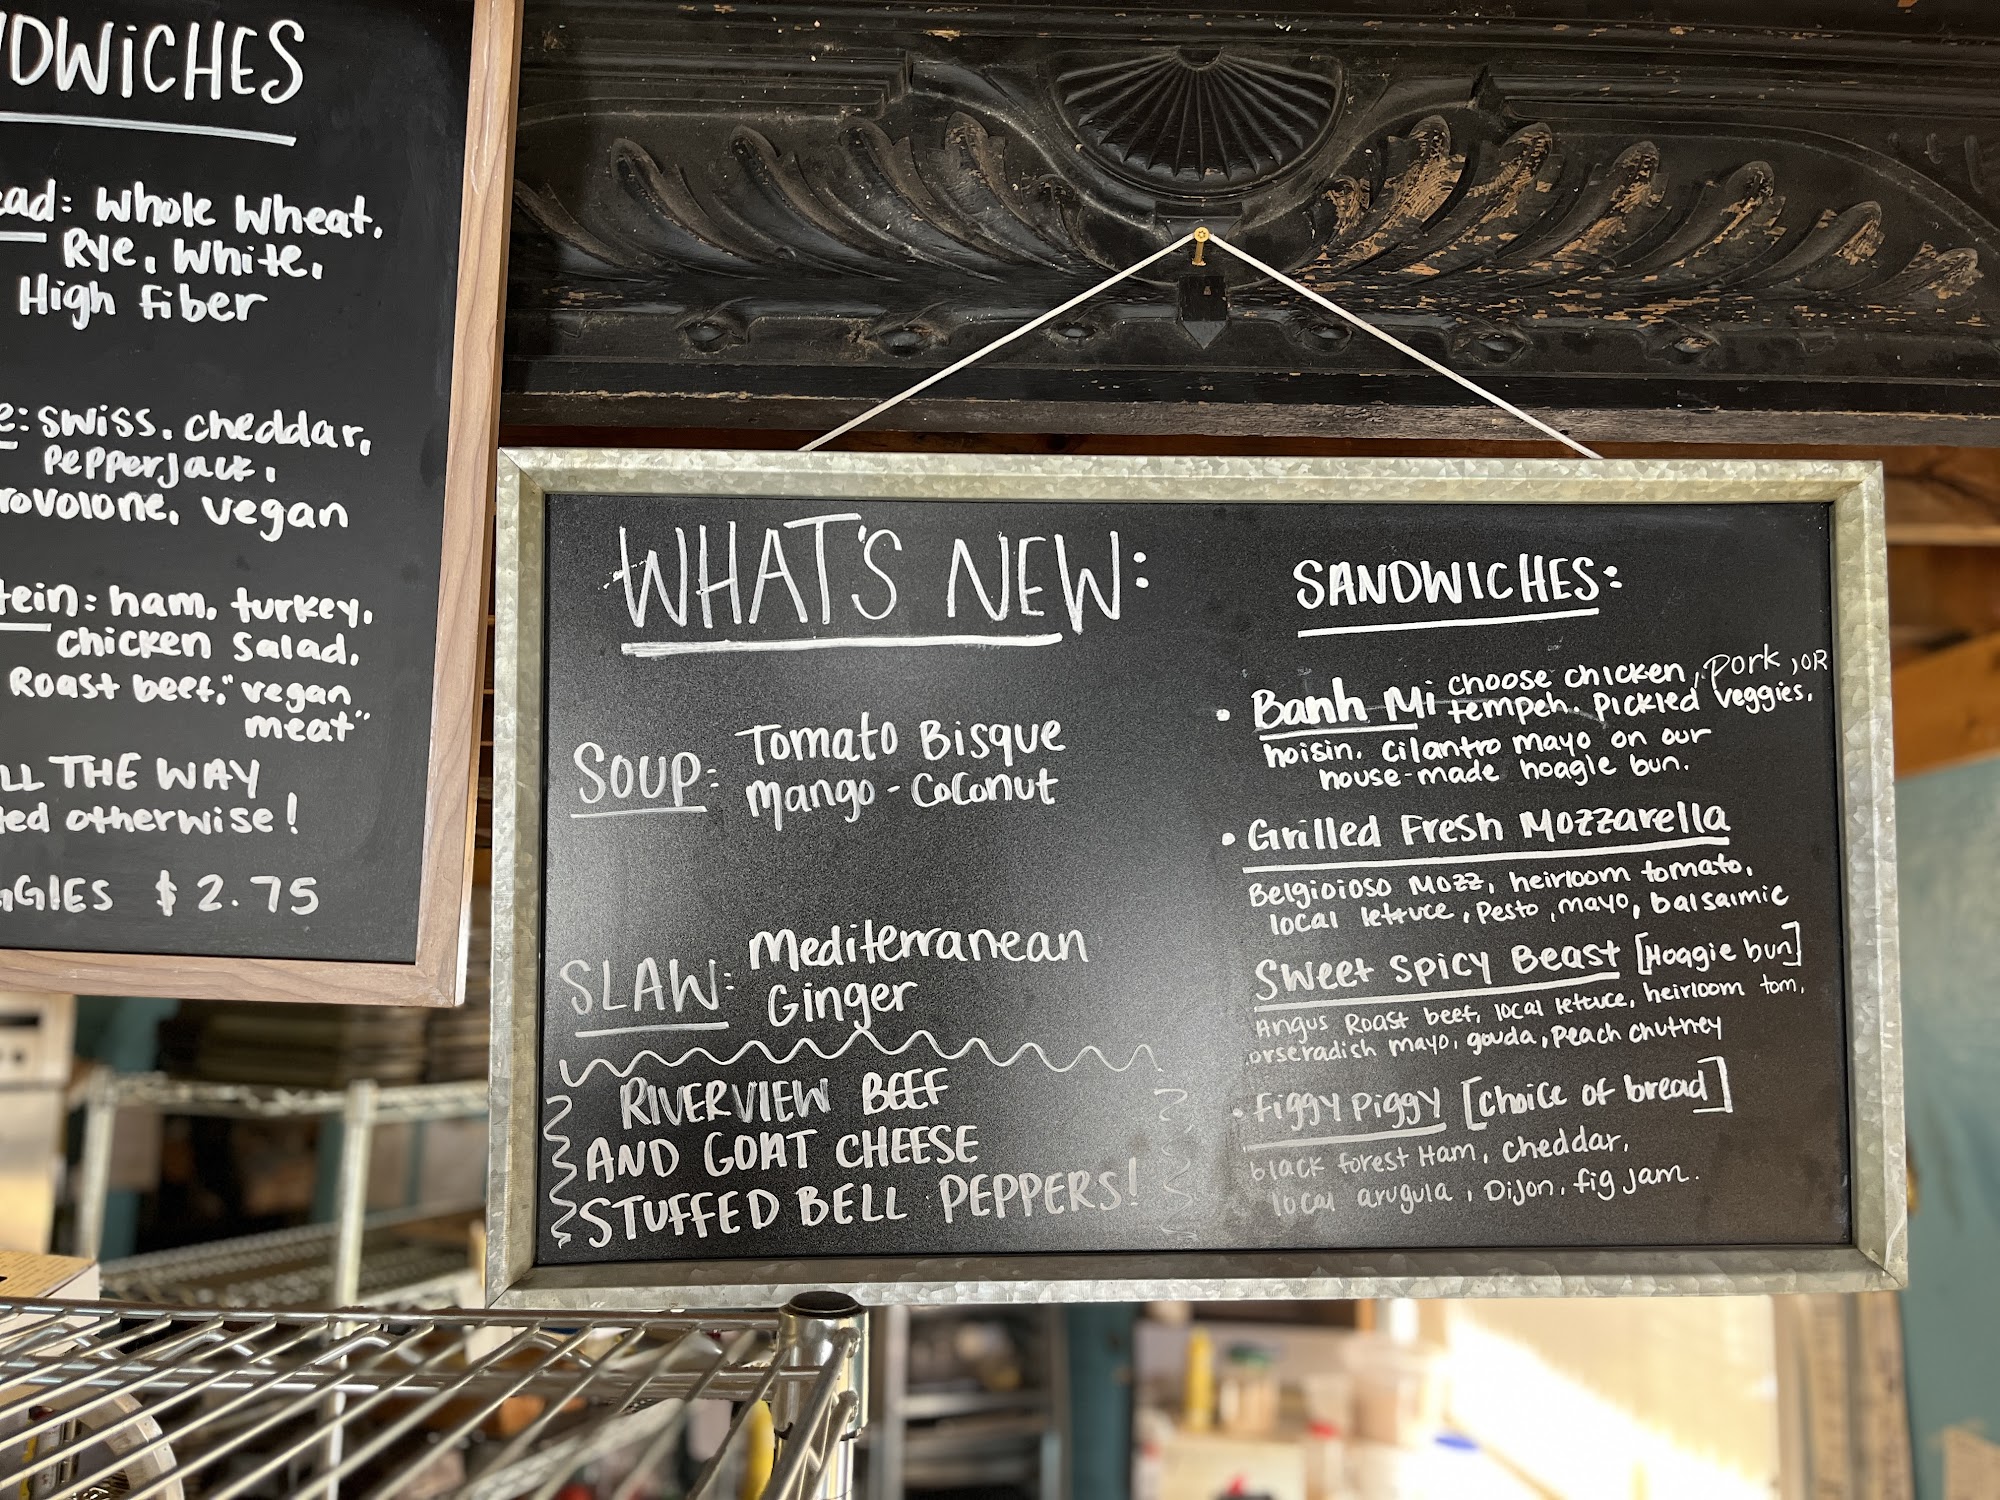 DWiCHES
ead: Whole Wheat,
Rye, White,
High Fiber
e: Swiss, cheddar,
Pepperjack,
rovolone, vegan
tein: ham, turkey,
chicken salad,
Roast beef, "vegan
meat"
LL THE WAY
ted otherwise!
GGIES $2.75
WHAT'S NEW:
SOUP: Tomato Bisque
Mango-Coconut
SLAW: Mediterranean
Ginger
RIVERVIEW BEEF
AND GOAT CHEESE
STUFFED BELL PEPPERS!
SANDWICHES:
• Banh Mi choose chicken, pork, OR
tempeh. Pickled veggies,
hoisin, cilantro mayo on our
house-made hoagie bun.
• Grilled Fresh Mozzarella
Belgioioso Mozz, heirloom tomato,
local lettuce, Pesto, mayo, balsaimic
Sweet Spicy Beast [Hoagie bun]
Angus Roast beef, local lettuce, heirloom tom,
orseradish mayo, gouda, Peach chutney
• Figgy Piggy [choice of bread]
black forest Ham, cheddar,
local arugula, Dijon, fig jam.